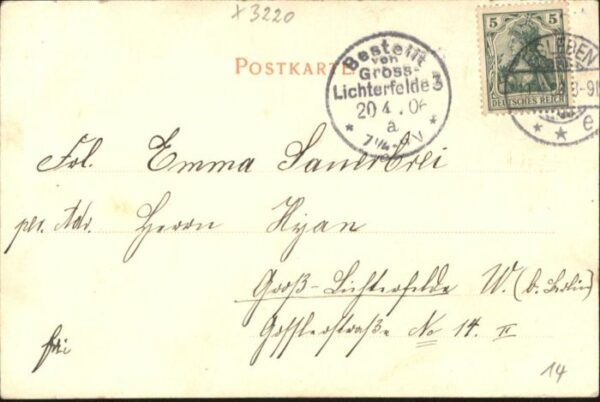 x 3220
POSTKARTE
Bestellt
von
Gross-
Lichterfelde 3
20 4. 06
a
5
DEUTSCHES REICH
SLEBEN
8-9
e
Frl. Emma Sauerbrei
per. Adr. Herrn Hyan
Groß-Lichterfelde W. (b. Berlin)
Gosslerstraße No 14. II
frei
14